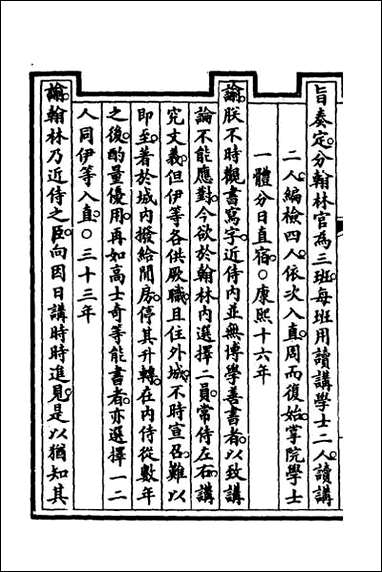 旨奏定分翰林官為三班每班用讀講學士二人讀講
二人編檢四人依次入直周而復始掌院學士
一體分日直宿○康熙十六年
諭朕不時觀書寫字近侍內並無博學善書者以致講
論不能應對今欲於翰林內選擇二員常侍左右講
究文義但伊等各供厥職且住外城不時宣召難以
即至著於城內撥給閒房停其升轉在內侍從數年
之後酌量優用再如高士奇等能書者亦選擇一二
人同伊等入直○三十三年
諭翰林乃近侍之臣向因日講時時進見是以猶知其